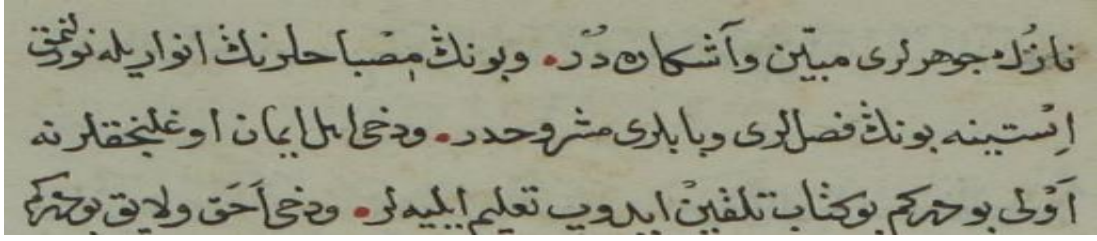 نازك جوهرلرى مبيّن وآشكاره دُر. وبونڭ مِصْباحلرنڭ انواريله نورلنمق
اِسْتينه بونڭ فصللرى وبابلرى مشروحدر. ودخى اهل ايمان اوغلنجقلرنه
اَوْلى بودركم بو كتاب تلقينْ ايدوب تعليم ايليه لر. ودخى اَحَق ولايق بودركم